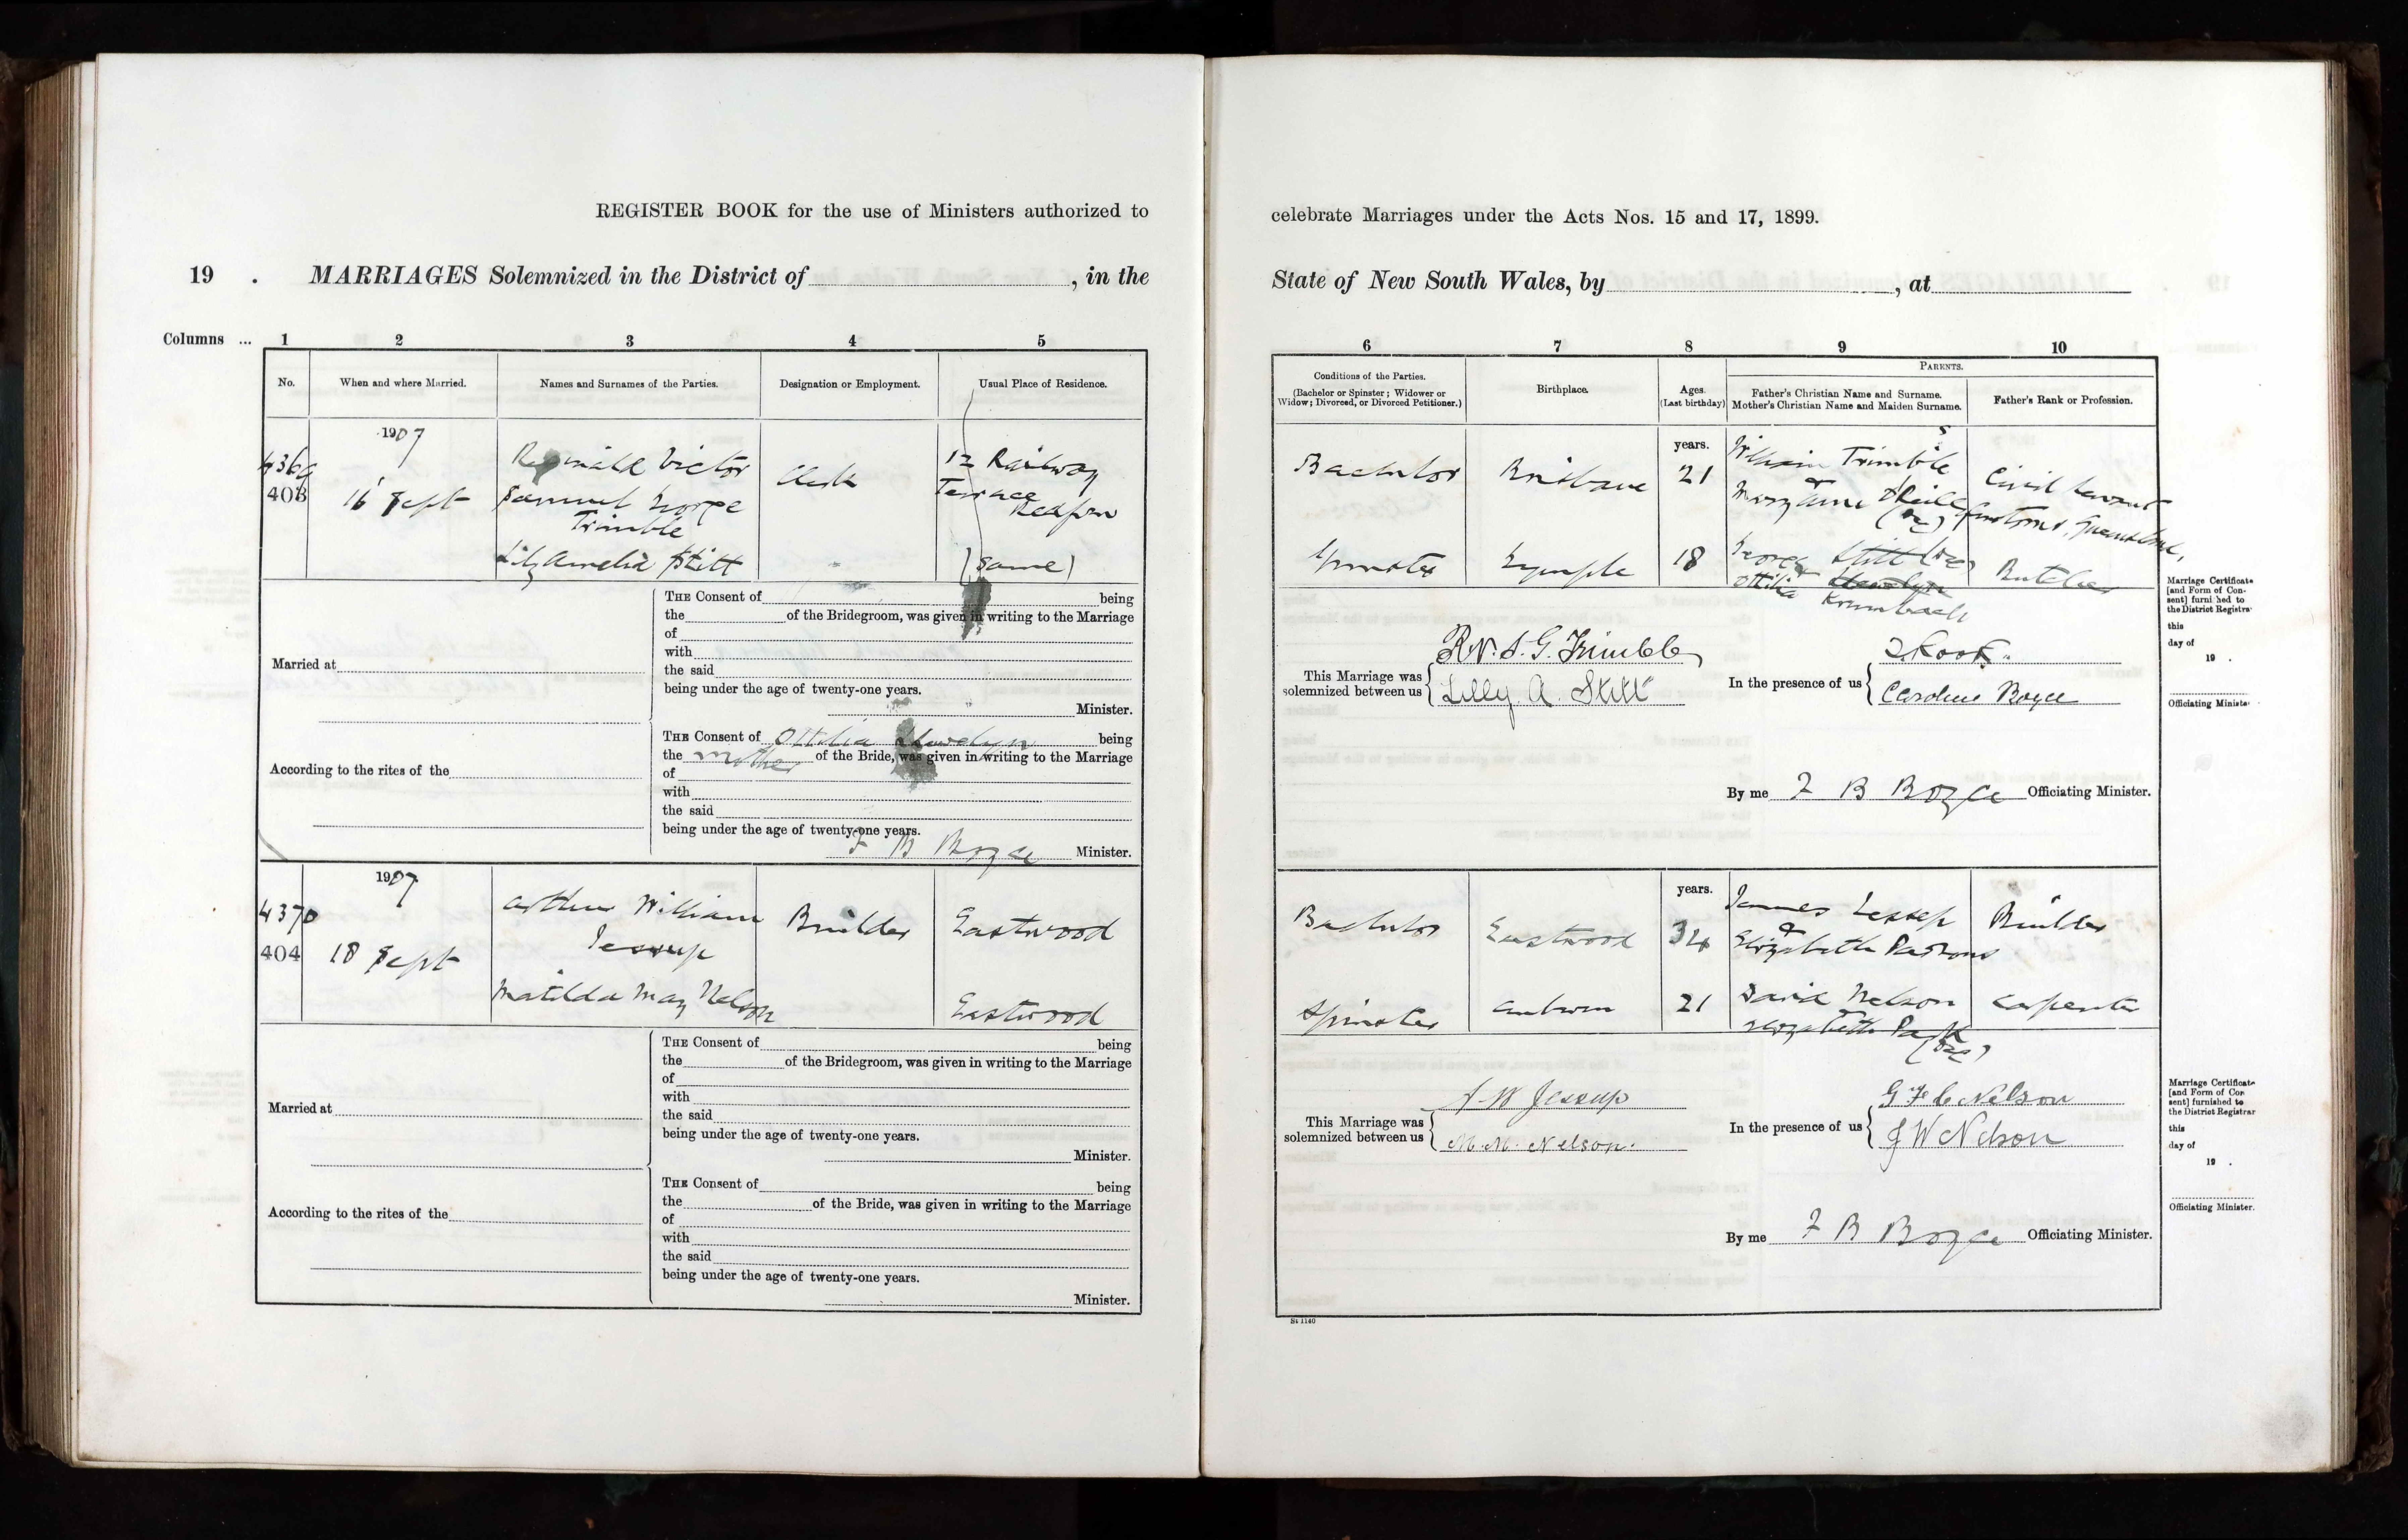 REGISTER BOOK for the use of Ministers authorized to
19 . MARRIAGES Solemnized in the District of , in the
Columns ... 1 2 3 4 5
No. When and where Married. Names and Surnames of the Parties. Designation or Employment. Usual Place of Residence.
1907
4369
403
16 Sept
Reginald Victor
Samuel George
Trimble
Clerk
12 Railway
Terrace
Redfern
Lily Amelia Stitt
(Same)
Married at
According to the rites of the
THE Consent of being
the of the Bridegroom, was given in writing to the Marriage
of
with
the said
being under the age of twenty-one years.
Minister.
THE Consent of Ottilia Llewelyn being
the mother of the Bride, was given in writing to the Marriage
of
with
the said
being under the age of twenty-one years.
F B Boyce Minister.
1907
4370
404
18 Sept
Arthur William
Jessup
Builder
Eastwood
Matilda May Nelson
Eastwood
Married at
According to the rites of the
THE Consent of being
the of the Bridegroom, was given in writing to the Marriage
of
with
the said
being under the age of twenty-one years.
Minister.
THE Consent of being
the of the Bride, was given in writing to the Marriage
of
with
the said
being under the age of twenty-one years.
Minister.
celebrate Marriages under the Acts Nos. 15 and 17, 1899.
State of New South Wales, by , at
6 7 8 9 10
PARENTS.
Conditions of the Parties.
(Bachelor or Spinster; Widower or
Widow; Divorced, or Divorced Petitioner.)
Birthplace.
Ages.
(Last birthday)
Father's Christian Name and Surname.
Mother's Christian Name and Maiden Surname.
Father's Rank or Profession.
years.
Bachelor Brisbane 21
William Trimble
&
Mary Anne O'Neill
Civil Servant
Customs, Queensland,
Spinster Gympie 18
George Stitt (dec)
Ottilia Llewelyn
Krumbach
Butcher
This Marriage was
solemnized between us
R.V. S. G. Trimble
Lilly. A. Stitt
In the presence of us
Caroline Boyce
By me F B Boyce Officiating Minister.
Marriage Certificate
[and Form of Con-
sent] furni hed to
the District Registra
this
day of
19 .
Officiating Ministe
years.
Bachelor Eastwood 34
James Jessup
&
Elizabeth Parsons
Builder
Spinster Auburn 21
David Nelson
Elizabeth Park
(dec)
Carpenter
This Marriage was
solemnized between us
A-W Jessup
M. M. Nelson.
In the presence of us
J W Nelson
By me F B Boyce Officiating Minister.
Marriage Certificate
[and Form of Con
sent] furnished to
the District Registrar
this
day of
19 .
Officiating Minister.
St 1140